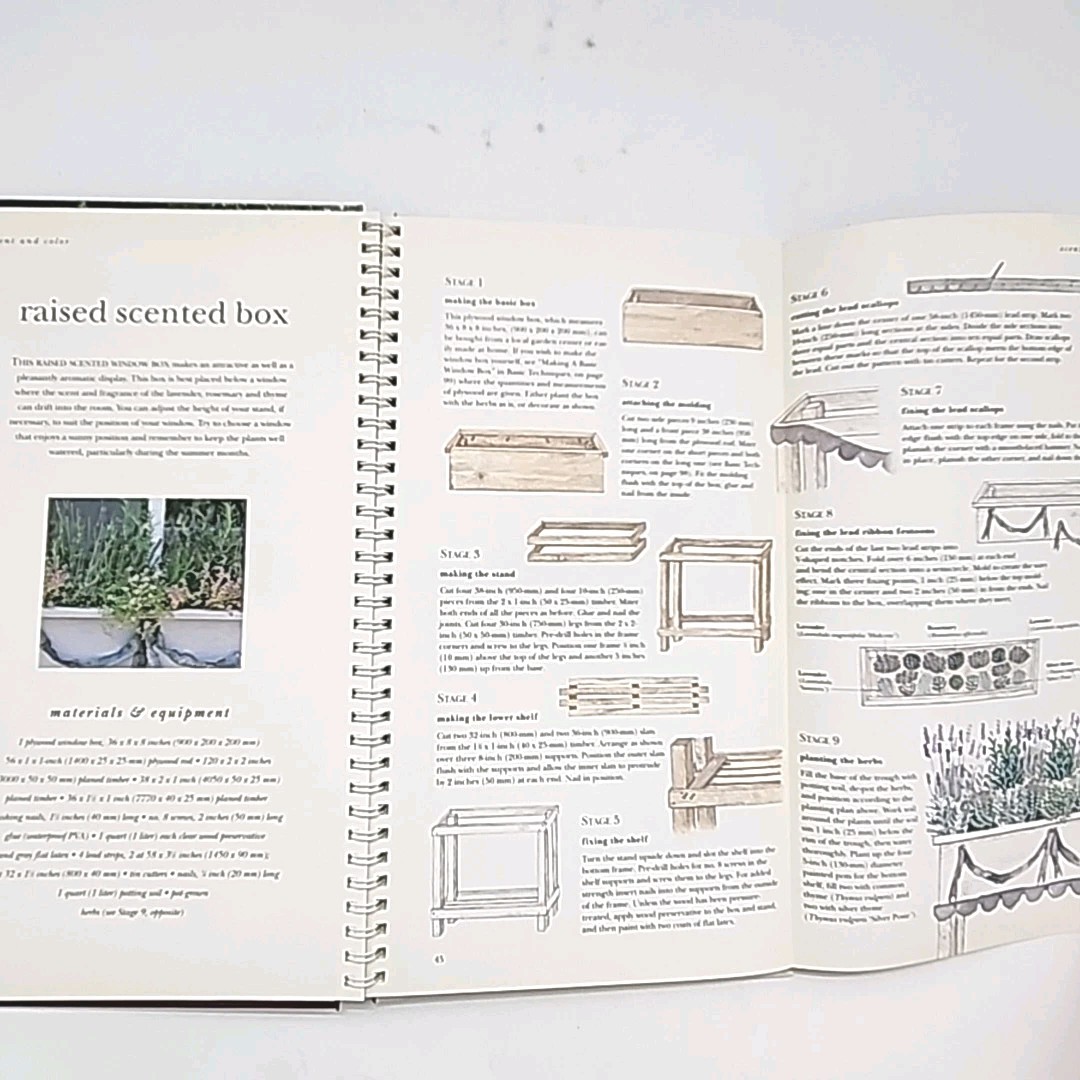 and color
raised scented box
THIS RAISED SCENTED WINDOW BOX makes an attractive as well as a
pleasantly aromatic display. This box is best placed below a window
where the scent and fragrance of the lavender, rosemary and thyme
can drift into the room. You can adjust the height of your stand, if
necessary, to suit the position of your window. Try to choose a window
that enjoys a sunny position and remember to keep the plants well
watered, particularly during the summer months.
materials & equipment
1 plywood window box, 36 x 8 x 8 inches (900 x 200 x 200 mm)
56 x 1 x 1 inch (1400 x 25 x 25 mm) plywood rod • 120 x 2 x 2 inches
(3000 x 50 x 50 mm) planed timber • 38 x 2 x 1 inch (4050 x 50 x 25 mm)
planed timber • 36 x 1½ x 1 inch (7770 x 40 x 25 mm) planed timber
nails, 1½ inches (40 mm) long • no. 8 screws, 2 inches (50 mm) long
glue (waterproof PVA) • 1 quart (1 liter) each clear wood preservative
and grey flat latex • 4 lead strips, 2 at 58 x 3½ inches (1450 x 90 mm);
32 x 1½ inches (800 x 40 mm) • tin cutters • nails, ¾ inch (20 mm) long
1 quart (1 liter) potting soil • pot-grown
herbs (see Stage 9, opposite)
STAGE 1
making the basic box
This plywood window box, which measures
36 x 8 x 8 inches, (900 x 200 x 200 mm), can
be bought from a local garden center or can
made at home. If you wish to make the
window box yourself, see "Making A Basic
Window Box" in Basic Techniques, on page
where the quantities and measurements
of plywood are given. Either plant the box
with the herbs as is, or decorate as shown.
STAGE 2
attaching the molding
Cut two side pieces 9 inches (230 mm)
long and a front piece 38 inches (950
mm) long from the plywood rod. Miter
one corner on the short pieces and both
corners on the long one (see Basic Tech-
niques, on page 98). Fix the molding
flush with the top of the box, glue and
nail from the inside.
STAGE 3
making the stand
Cut four 38-inch (950-mm) and four 10-inch (250-mm)
pieces from the 2 x 1 inch (50 x 25-mm) timber. Miter
both ends of all the pieces as before. Glue and nail the
joints. Cut four 30-inch (750-mm) legs from the 2 x 2-
inch (50 x 50-mm) timber. Pre-drill holes in the frame
corners and screw to the legs. Position one frame ½ inch
(10 mm) above the top of the legs and another 5 inches
(130 mm) up from the base.
STAGE 4
making the lower shelf
Cut two 32-inch (800-mm) and two 36-inch (900-mm) slats
from the 1½ x 1-inch (40 x 25-mm) timber. Arrange as shown
over three 8-inch (200-mm) supports. Position the outer slats
flush with the supports and allow the inner slats to protrude
by 2 inches (50 mm) at each end. Nail in position.
STAGE 5
fixing the shelf
Turn the stand upside down and slot the shelf into the
bottom frame. Pre-drill holes for no. 8 screws in the
shelf supports and screw them to the legs. For added
strength insert nails into the supports from the outside
of the frame. Unless the wood has been pressure-
treated, apply wood preservative to the box and stand,
and then paint with two coats of flat latex.
45
STAGE 6
cutting the lead scallops
Mark a line down the center of one 58-inch (1450-mm) lead strip. Mark two
10-inch (250-mm) long sections at the sides. Divide the side sections into
three equal parts and the central section into ten equal parts. Draw scallops
between these marks so that the top of the scallop meets the bottom edge of
the lead. Cut out the pattern with tin cutters. Repeat for the second strip.
STAGE 7
fixing the lead scallops
Attach one strip to each frame using the nails. Put
edge flush with the top edge on one side, fold
the corner with a
in place, planish the other corner, and nail down
STAGE 8
fixing the lead ribbon festoons
Cut the ends of the last two lead strips into
V-shaped notches. Fold over 6 inches (150 mm) at each end
and bend the central section into a semicircle. Mold to create the
effect. Mark three fixing points, 1 inch (25 mm) below the top mold-
ing: one in the center and two 2 inches (50 mm) in from the ends. Nail
the ribbons to the box, overlapping them where they meet.
Lavender
Rosemary
STAGE 9
planting the herbs
Fill the base of the trough with
potting soil, de-pot the herbs,
and position according to the
planting plan above. Work soil
around the plants until the soil
1 inch (25 mm) below the
rim of the trough, then water
thoroughly. Plant up the four
5-inch (130-mm) diameter
painted pots for the bottom
shelf, fill two with common
thyme (Thymus vulgaris) and
two with silver thyme
(Thymus vulgaris 'Silver Posie').